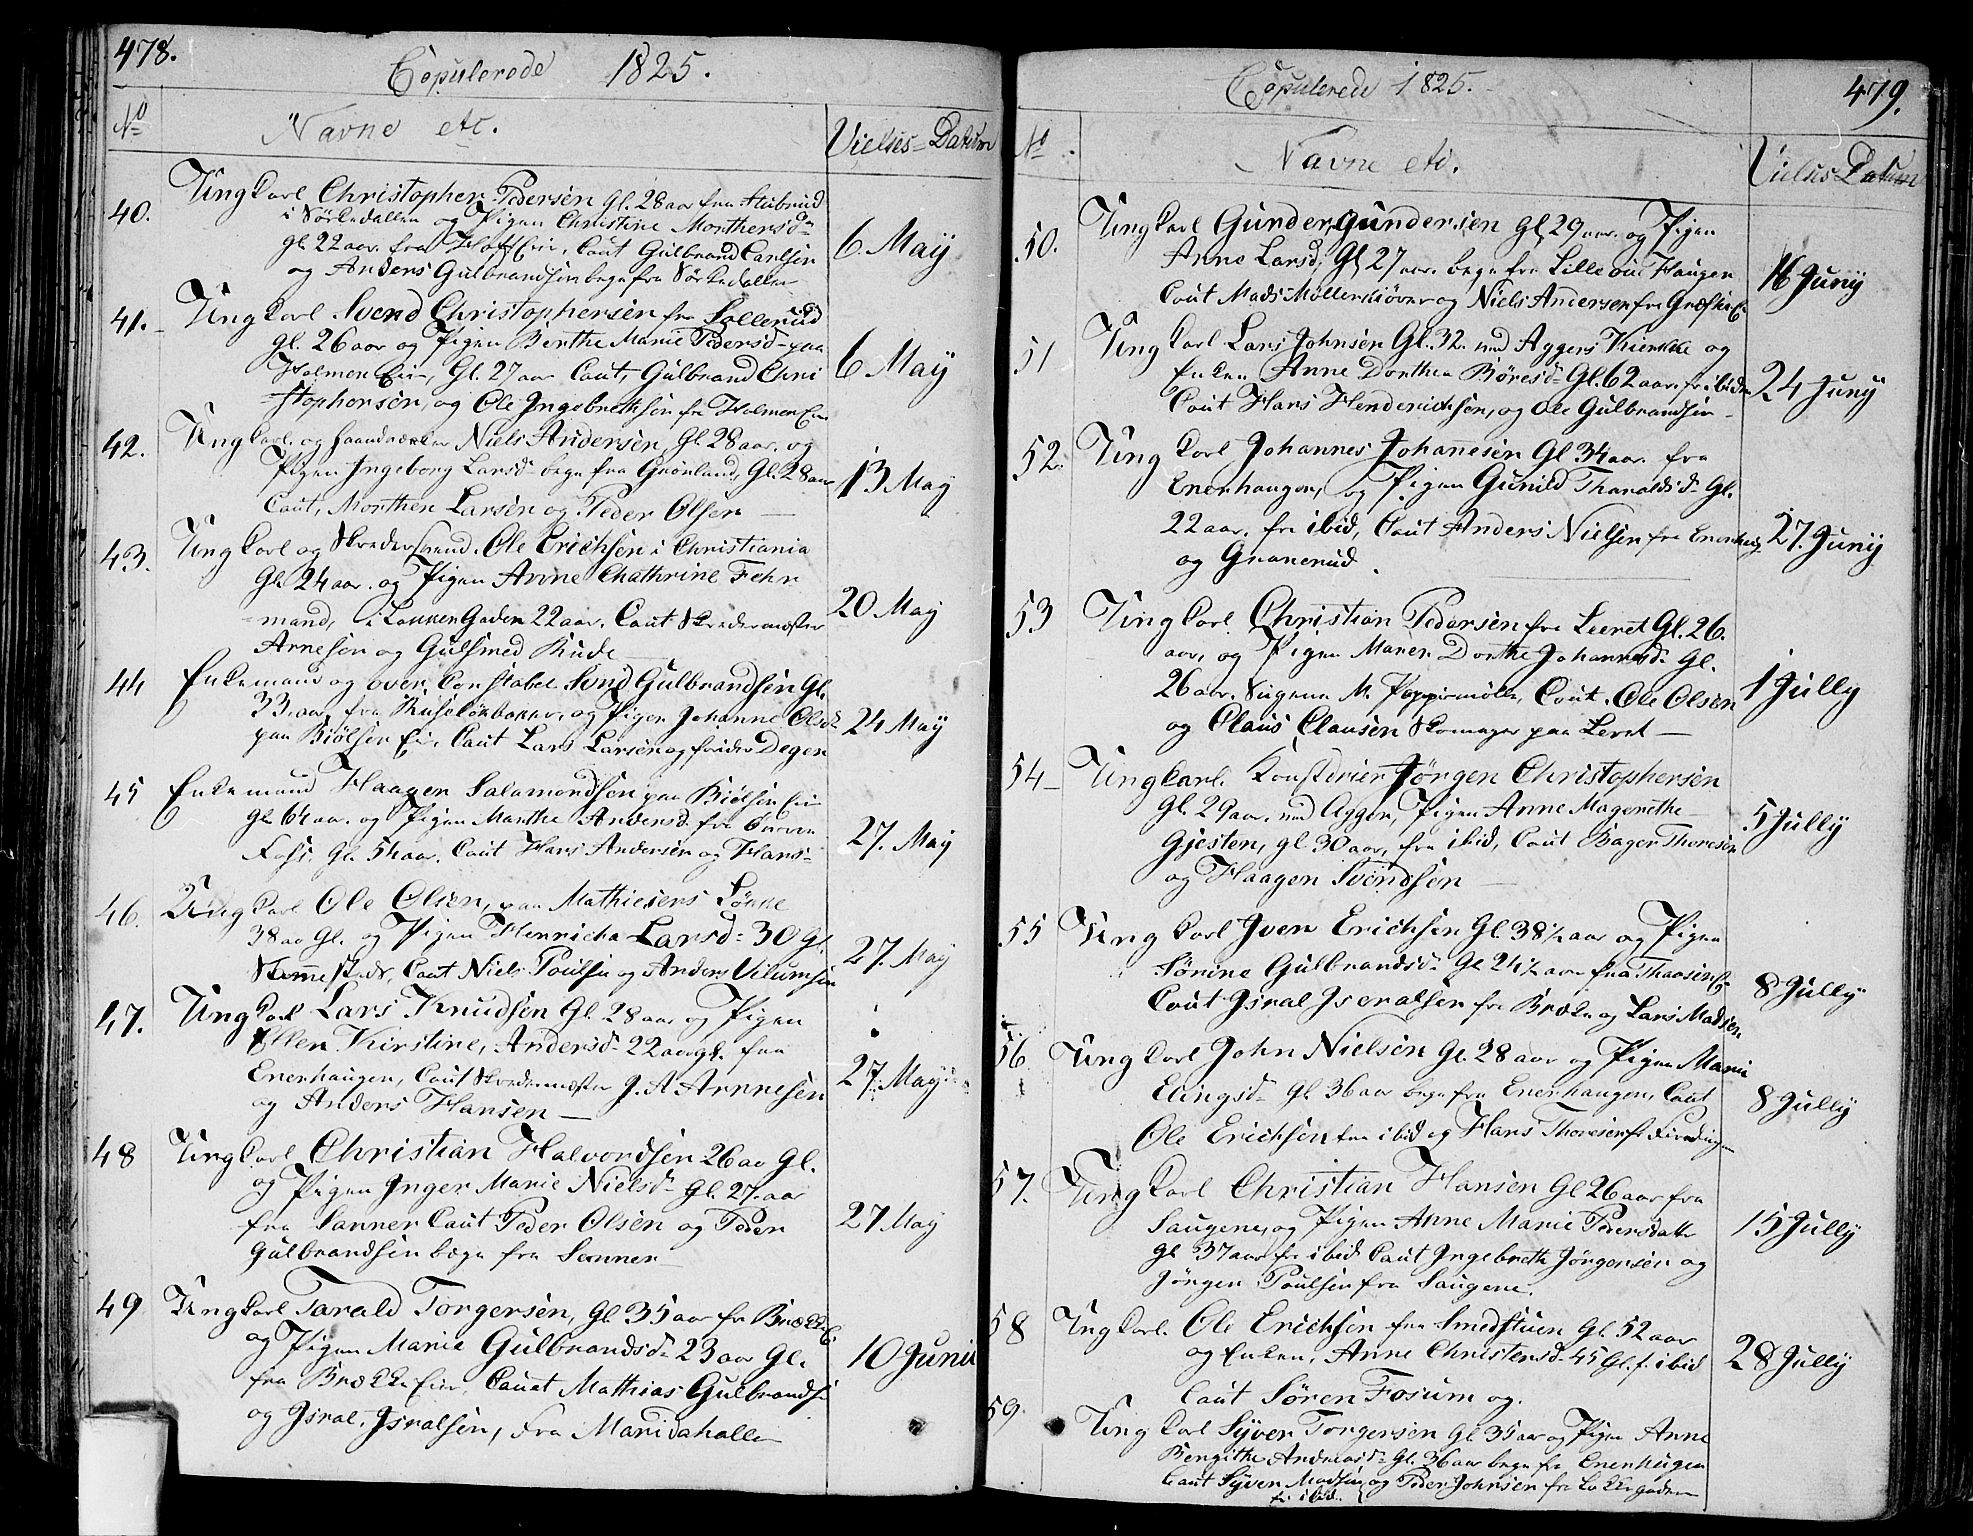 478.
Copulerede 1825.
No Navne etc. Vielses-Datum
40. Ungkarl Christopher Pedersen Gl. 28 aar fra
i Sørkedallen og Pigen Christine Morthensd-
gl. 22 aar. fra Eie, Caut Gulbrand Carlsen
og Anders Gulbrandsen begge fra Sørkedallen
6. May
41. Ungkarl Svend Christophersen fra Sollerud
gl. 26 aar og Pigen Birthe Marie Pedersd- paa
Holmen Eie, Gl. 27 aar Caut, Gulbrand Chri
stophersen, og Ole Ingebrethsen fr Holmen Eie
6 May
42. Ungkarl og Haandværker Niels Andersen, Gl. 28 aar. og
Pigen Ingeborg Larsd- begge fra Grønland, Gl. 28 aar
Caut, Morthen Larsen og Peder Olsen
13 May
43. Ungkarl og Skredersvend. Ole Erichsen i Christiania
Gl. 24 aar. og Pigen Anne Chathrine Fehr
mand, i Lakken Gaden 22 aar. Caut Skredermester
Arnesen og Gulsmed Kude
20 May
44 Enkemand og over Constabel Svend Gulbrandsen Gl.
33. aar, fra Ruseløkbakken, og Pigen Johanne Olsd-
paa Biølsen Eie, Caut Lars Larsen og Degen
24 May
45 Enkemand Haagen Salamondsen paa Biølsen Eie
Gl 64 aar. og Pigen Marthe Andersd- fra
Foss. Gl. 54 aar. Caut Hans Andersen og Hans-
27. May
46. Ungkarl Ole Olsen, paa Mathiesens Løkke
38 aa Gl. og Pigen Henricha Larsd- 30 Gl.
Caut Niels Poulsen og Anders Vilumsen
27. May
47. Ungkarl Lars Knudsen Gl. 28 aar og Pigen
Ellen Kirstine, Andersd- 22 aar gl. fra
Enerhaugen, Caut Skredermester J. A Arnnesen
og Anders Hansen
27. May
48 Ungkarl Christian Halvordsen 26 aa Gl.
og Pigen Inger Marie Nielsd- Gl. 27. aar
fra Sanner Caut Peder Olsen og Peder
Gulbrandsen begge fra Sanner
27 May
49 Ungkarl Tarald Torgersen, Gl. 35 aar fr Brække E.
og Pigen Marie Gulbrandsd- 23 aar Gl.
fra Brække Eie, Cauet Mathias Gulbrandse
og Isral, Isralsen, fra Maridahallen
10 Junii
479.
Copulerede 1825.
No Navne etc. Vielses Datum
50. Ungkarl Gunder, Gundersen Gl 29 aar. og Pigen
Anne Larsd, Gl 27 aar. begge fra Lilleøen Haugen
Caut Mads Møllerskiøver og Niels Andersen fra Græfsen E.
16 Juny
51 Ungkarl Lars Johnsen Gl. 32. ved Aggers Kierkke og
Enken Anne Dorthea Børesd- Gl. 62 aar. fr ibidm
Caut Hans Henderichsen, og Ole Gulbrandsen
24 Juny
52. Ungkarl Johannes Johanesen Gl 34 aar. fra
Enerhaugen, og Pigen Gunild Tharaldsd- Gl.
22 aar. fra ibid, Caut Anders Nielsen fra Enerhaug
og Granerud.
27. Juny
53 Ungkarl Christian Pedersen fra Leeret Gl. 26.
aar, og Pigen Maren Dorthe Johannesd- Gl.
26 aar. Papirmølle, Caut. Ole Olsen
og Claus Clausen Skomager paa Leret
1 Jully
54 Ungkarl. Jørgen Christophersen
Gl. 29 aar. ved Agger, Pigen Anne Magerethe
Gjesten, gl. 30 aar, fra ibid, Caut Bager Thoresen
og Haagen Svendsen
5 Jully
55 Ungkarl Iven Erichsen Gl 38½ aar og Pigen
Sørine Gulbrandsd- Gl 24½ aar fra Thaasen E-
Caut Isral Iseralsen fra Bræke og Lars Madsen
8 Jully
56 Ungkarl John Nielsen Gl. 28 aar og Pigen Marie
Elingsd- Gl 36 aar begge fra Enerhaugen, Caut
Ole Erichsen fra ibid og Hans Thoresen
8 Jully
57. Ungkarl Christian Hansen Gl 26 aar fra
Saugene, og Pigen Anne Marie Pedersdatter
Gl 37 aar fr ibid Caut Ingebreth Jørgensen og
Jørgen Poulsen fra Saugene.
15 Jully
58 Ungkarl. Ole Erichsen fra Smedstuen Gl. 52 aar
og Enken, Anne Christensd- 45 Gl. f. ibid
Caut Søren Fosum og.
28 Jully
59. Ungkarl Syver Torgersen Gl 35 aar og Pigen Anne
Bengithe Andreasd- Gl. 36 aar begge fra Enerhugen
Caut Syver Madsen og Peder Johnsen fra Lakkegaden
fr ibid.